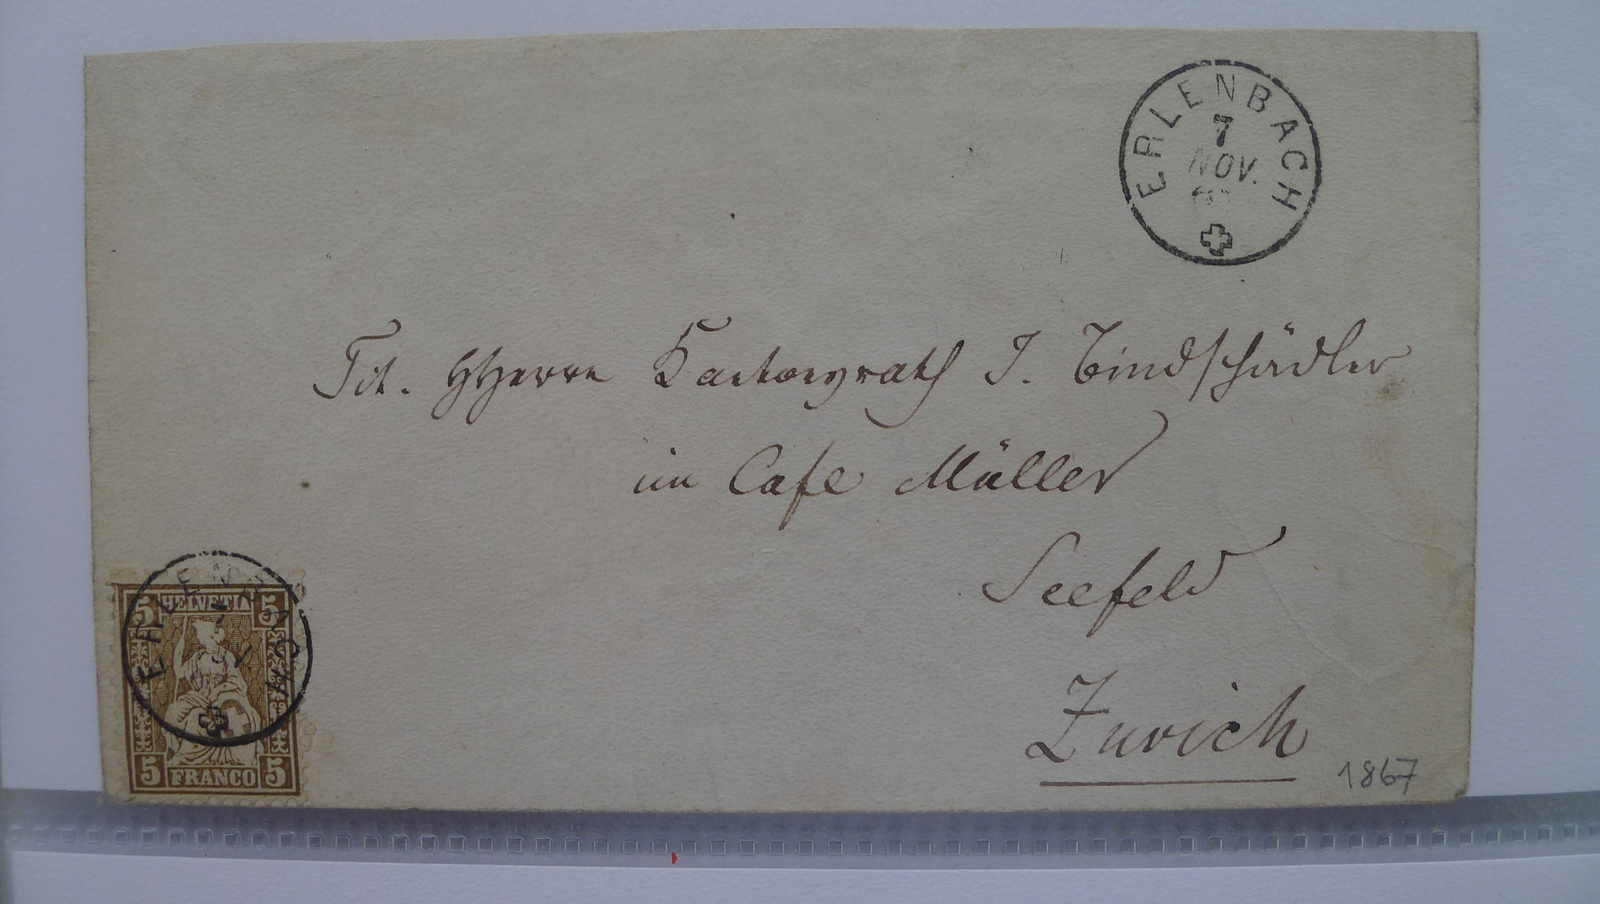 ERLENBACH
7
NOV.
Tit. HHerrn Kantonsrath J. Bindschädler
im Cafe Müller
Seefeld
Zurich
1867
5 HELVETIA 5
5 FRANCO 5
ERLENBACH